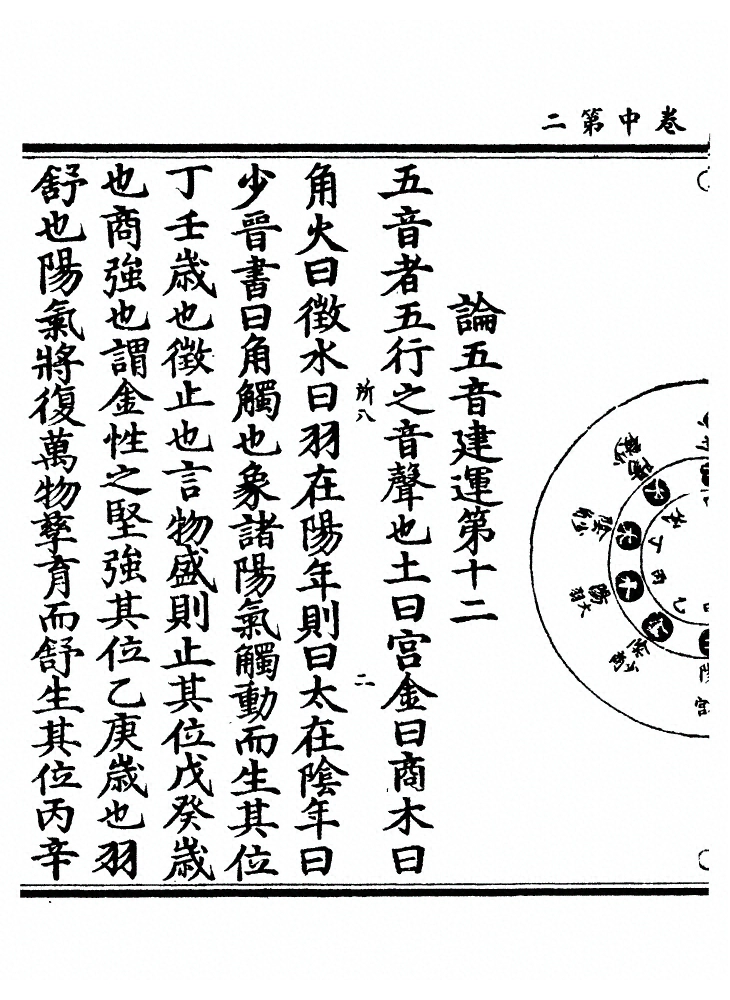 卷中第二
論五音建運第十二
五音者五行之音聲也土曰宮金曰商木曰
角火曰徵水曰羽在陽年則曰太在陰年曰
少晉書曰角觸也象諸陽氣觸動而生其位
丁壬歲也徵止也言物盛則止其位戊癸歲
也商強也謂金性之堅強其位乙庚歲也羽
舒也陽氣將復萬物孳育而舒生其位丙辛
所八
二